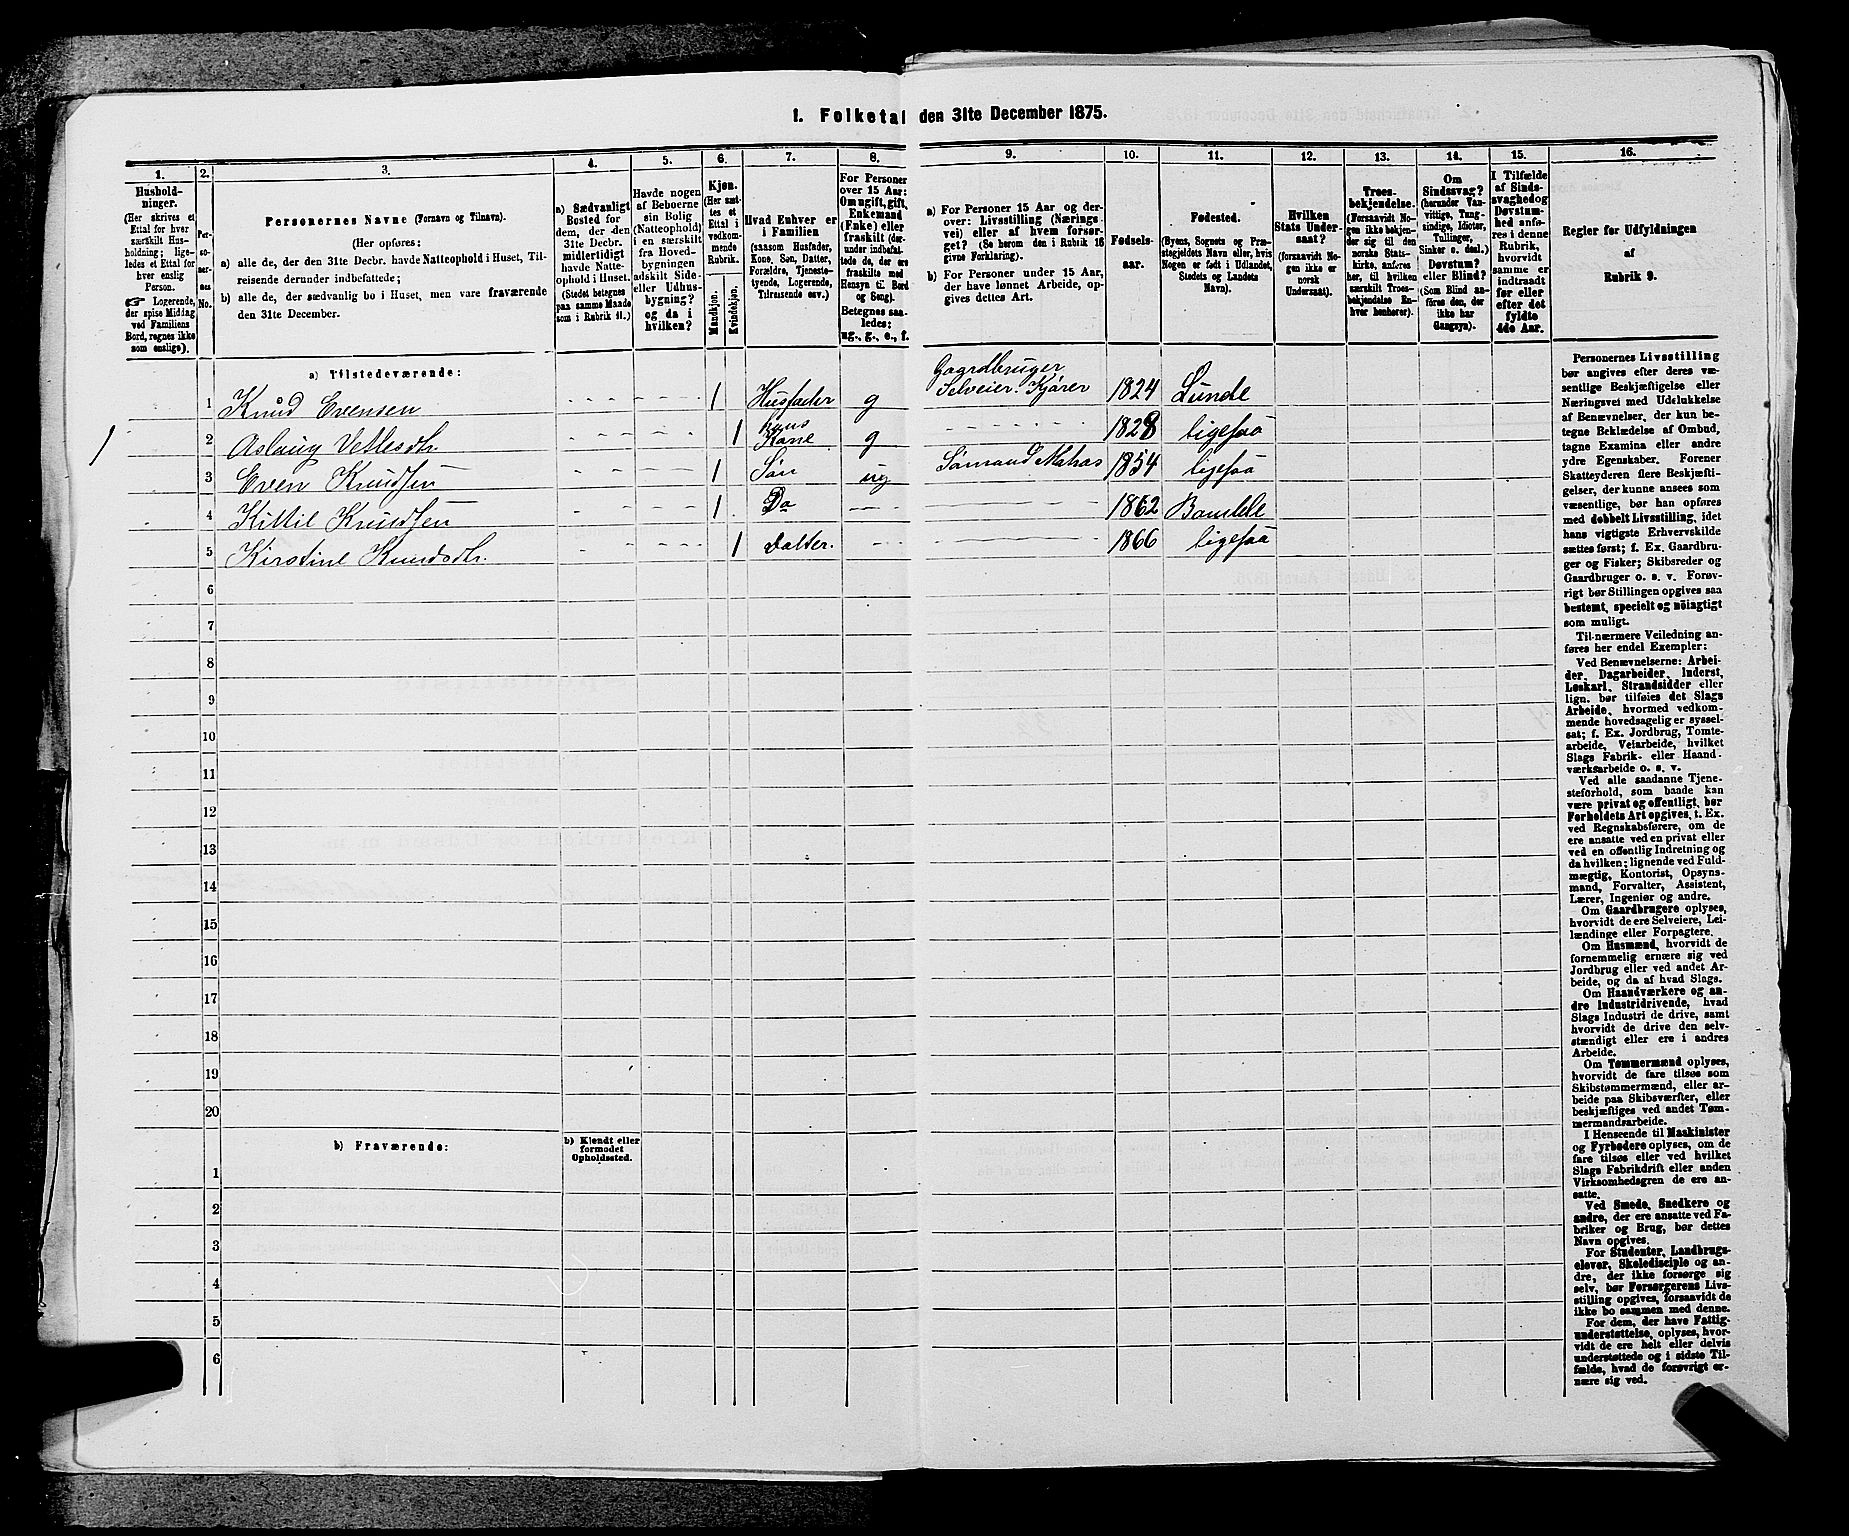 1. Folketal den 31te December 1875.
1.
Hushold-
ninger.
(Her skrives et
Ettal for hver
særskilt Hus-
holdning; lige-
ledes et Ettal for
hver enslig
Person.
☞ Logerende,
der spise Middag
ved Familiens
Bord, regnes ikke
som enslige).
2.
Per-
so-
ner-
nes
No.
3.
Personernes Navne (Fornavn og Tilnavn).
(Her opføres:
a) alle de, der den 31te Decbr. havde Natteophold i Huset, Til-
reisende derunder indbefattede;
b) alle de, der sædvanlig bo i Huset, men vare fraværende
den 31te December.
4.
a) Sædvanligt
Bosted for
dem, der den
31te Decbr.
midlertidigt
havde Natte-
ophold i Huset.
(Stedet betegnes
paa samme Maade
som i Rubrik 11.)
5.
Havde nogen
af Beboerne
sin Bolig
(Natteophold)
i en særskilt
fra Hoved-
bygningen
adskilt Side-
eller Udhus-
bygning?
og da i
hvilken?
6.
Kjøn.
(Her sæt-
tes et
Ettal i
vedkom-
mende
Rubrik.
Mandkjøn.
Kvindekjøn.
7.
Hvad Enhver er
i Familien
(saasom Husfader,
Kone, Søn, Datter,
Forældre, Tjeneste-
tyende, Logerende,
Tilreisende osv.)
8.
For Personer
over 15 Aar:
Om ugift, gift,
Enkemand
(Enke) eller
fraskilt (der-
under indbefat-
tede de, der ere
fraskilte med
Hensyn til Bord
og Seng).
Betegnes saa-
ledes:
ug., g., e., f.
9.
a) For Personer 15 Aar og der-
over: Livsstilling (Nærings-
vei) eller af hvem forsør-
get? (Se herom den i Rubrik 16
givne Forklaring).
b) For Personer under 15 Aar,
der have lønnet Arbeide, op-
gives dettes Art.
10.
Fødsels-
aar.
11.
Fødested.
(Byens, Sognets og Præ-
stegjeldets Navn eller, hvis
Nogen er født i Udlandet,
Stedets og Landets
Navn).
12.
Hvilken
Stats Under-
saat?
(forsaavidt No-
gen ikke er
norsk
Undersaat).
13.
Troes-
bekjendelse.
(Forsaavidt No-
gen ikke bekjen-
der sig til den
norske Stats-
kirke, anføres
her, til hvilken
særskilt Troes-
bekjendelse En-
hver henhører).
14.
Om
Sindssvag?
(herunder Van-
vittige, Tung-
sindige, Idioter,
Tullinger,
Sinker o. desl.)
Døvstum?
eller Blind?
(Som Blind an-
føres den, der
ikke har
Gangsyn).
15.
I Tilfælde
af Sinds-
svaghed og
Døvstum-
hed anfø-
res i denne
Rubrik,
hvorvidt
samme er
indtraadt
før eller
efter det
fyldte
4de Aar.
16.
Regler for Udfyldningen
af
Rubrik 9.
a) Tilstedeværende:
Gaardbruger
1 Knud Evensen 1 Husfader g Selveier. Kjører 1824 Lunde
1
2 Aslaug Vetlesdtr. 1 hans Kone g 1828 ligesaa
3 Even Knudsen 1 Søn ug Sømand Matros 1854 ligesaa
4 Kittil Knudsen 1 Do 1862 Bamble
5 Kirstine Knudsdtr. 1 Datter. 1866 ligesaa
6
7
8
9
10
11
12
13
14
15
16
17
18
19
20
b) Fraværende:
b) Kjendt eller
formodet
Opholdssted.
1
2
3
4
5
6
Personernes Livsstilling
bør angives efter deres væ-
sentlige Beskjæftigelse eller
Næringsvei med Udelukkelse
af Benævnelser, der kun be-
tegne Beklædelse af Ombud,
tagne Examina eller andre
ydre Egenskaber. Forener
Skatteyderen flere Beskjæfti-
gelser, der kunne ansees som
væsentlige, bør han opføres
med dobbelt Livsstilling, idet
hans vigtigste Erhvervskilde
sættes først; f. Ex. Gaardbru-
ger og Fisker; Skibsreder og
Gaardbruger o. s. v. Forøv-
rigt bør Stillingen opgives saa
bestemt, specielt og nöiagtigt
som muligt.
Til nærmere Veiledning an-
føres her endel Exempler:
Ved Benævnelserne: Arbei-
der, Dagarbeider, Inderst,
Løskarl, Strandsidder eller
lign. bør tilføies det Slags
Arbeide, hvormed vedkom-
mende hovedsagelig er syssel-
sat; f. Ex. Jordbrug, Tomte-
arbeide, Veiarbeide, hvilket
Slags Fabrik- eller Haand-
værksarbeide o. s. v.
Ved alle saadanne Tjene-
steforhold, som baade kan
være privat og offentligt, bør
Forholdets Art opgives, t. Ex.
ved Regnskabsførere, om de
ere ansatte ved en privat eller
ved en offentlig Indretning og
da hvilken; lignende ved Fuld-
mægtig, Kontorist, Opsyns-
mand, Forvalter, Assistent,
Lærer, Ingeniør og andre.
Om Gaardbrugere oplyses,
hvorvidt de ere Selveiere, Lei-
lændinge eller Forpagtere.
Om Husmænd, hvorvidt de
fornemmelig ernære sig ved
Jordbrug eller ved andet Ar-
beide, og da af hvad Slags.
Om Haandværkere og an-
dre Industridrivende, hvad
Slags Industri de drive, samt
hvorvidt de drive den selv-
stændigt eller ere i andres
Arbeide.
Om Tømmermænd oplyses,
hvorvidt de fare tilsøs som
Skibstømmermænd, eller ar-
beide paa Skibsværfter, eller
beskjæftiges ved andet Tøm-
mermandsarbeide.
I Henseende til Maskinister
og Fyrbødere oplyses, om de
fare tilsøs eller ved hvilket
Slags Fabrikdrift eller anden
Virksomhedsgren de ere an-
satte.
Ved Smede, Snedkere og
andre, der ere ansatte ved Fa-
briker og Brug, bør dettes
Navn opgives.
For Studenter, Landbrugs-
elever, Skoledisciple og an-
dre, der ikke forsørge sig
selv, bør Forsørgerens Livs-
stilling opgives, forsaavidt de
ikke bo sammen med denne.
For dem, der have Fattig-
understøttelse, oplyses, hvor-
vidt de ere helt eller delvis
understøttede og i sidste Til-
fælde, hvad de forøvrigt er-
nære sig ved.